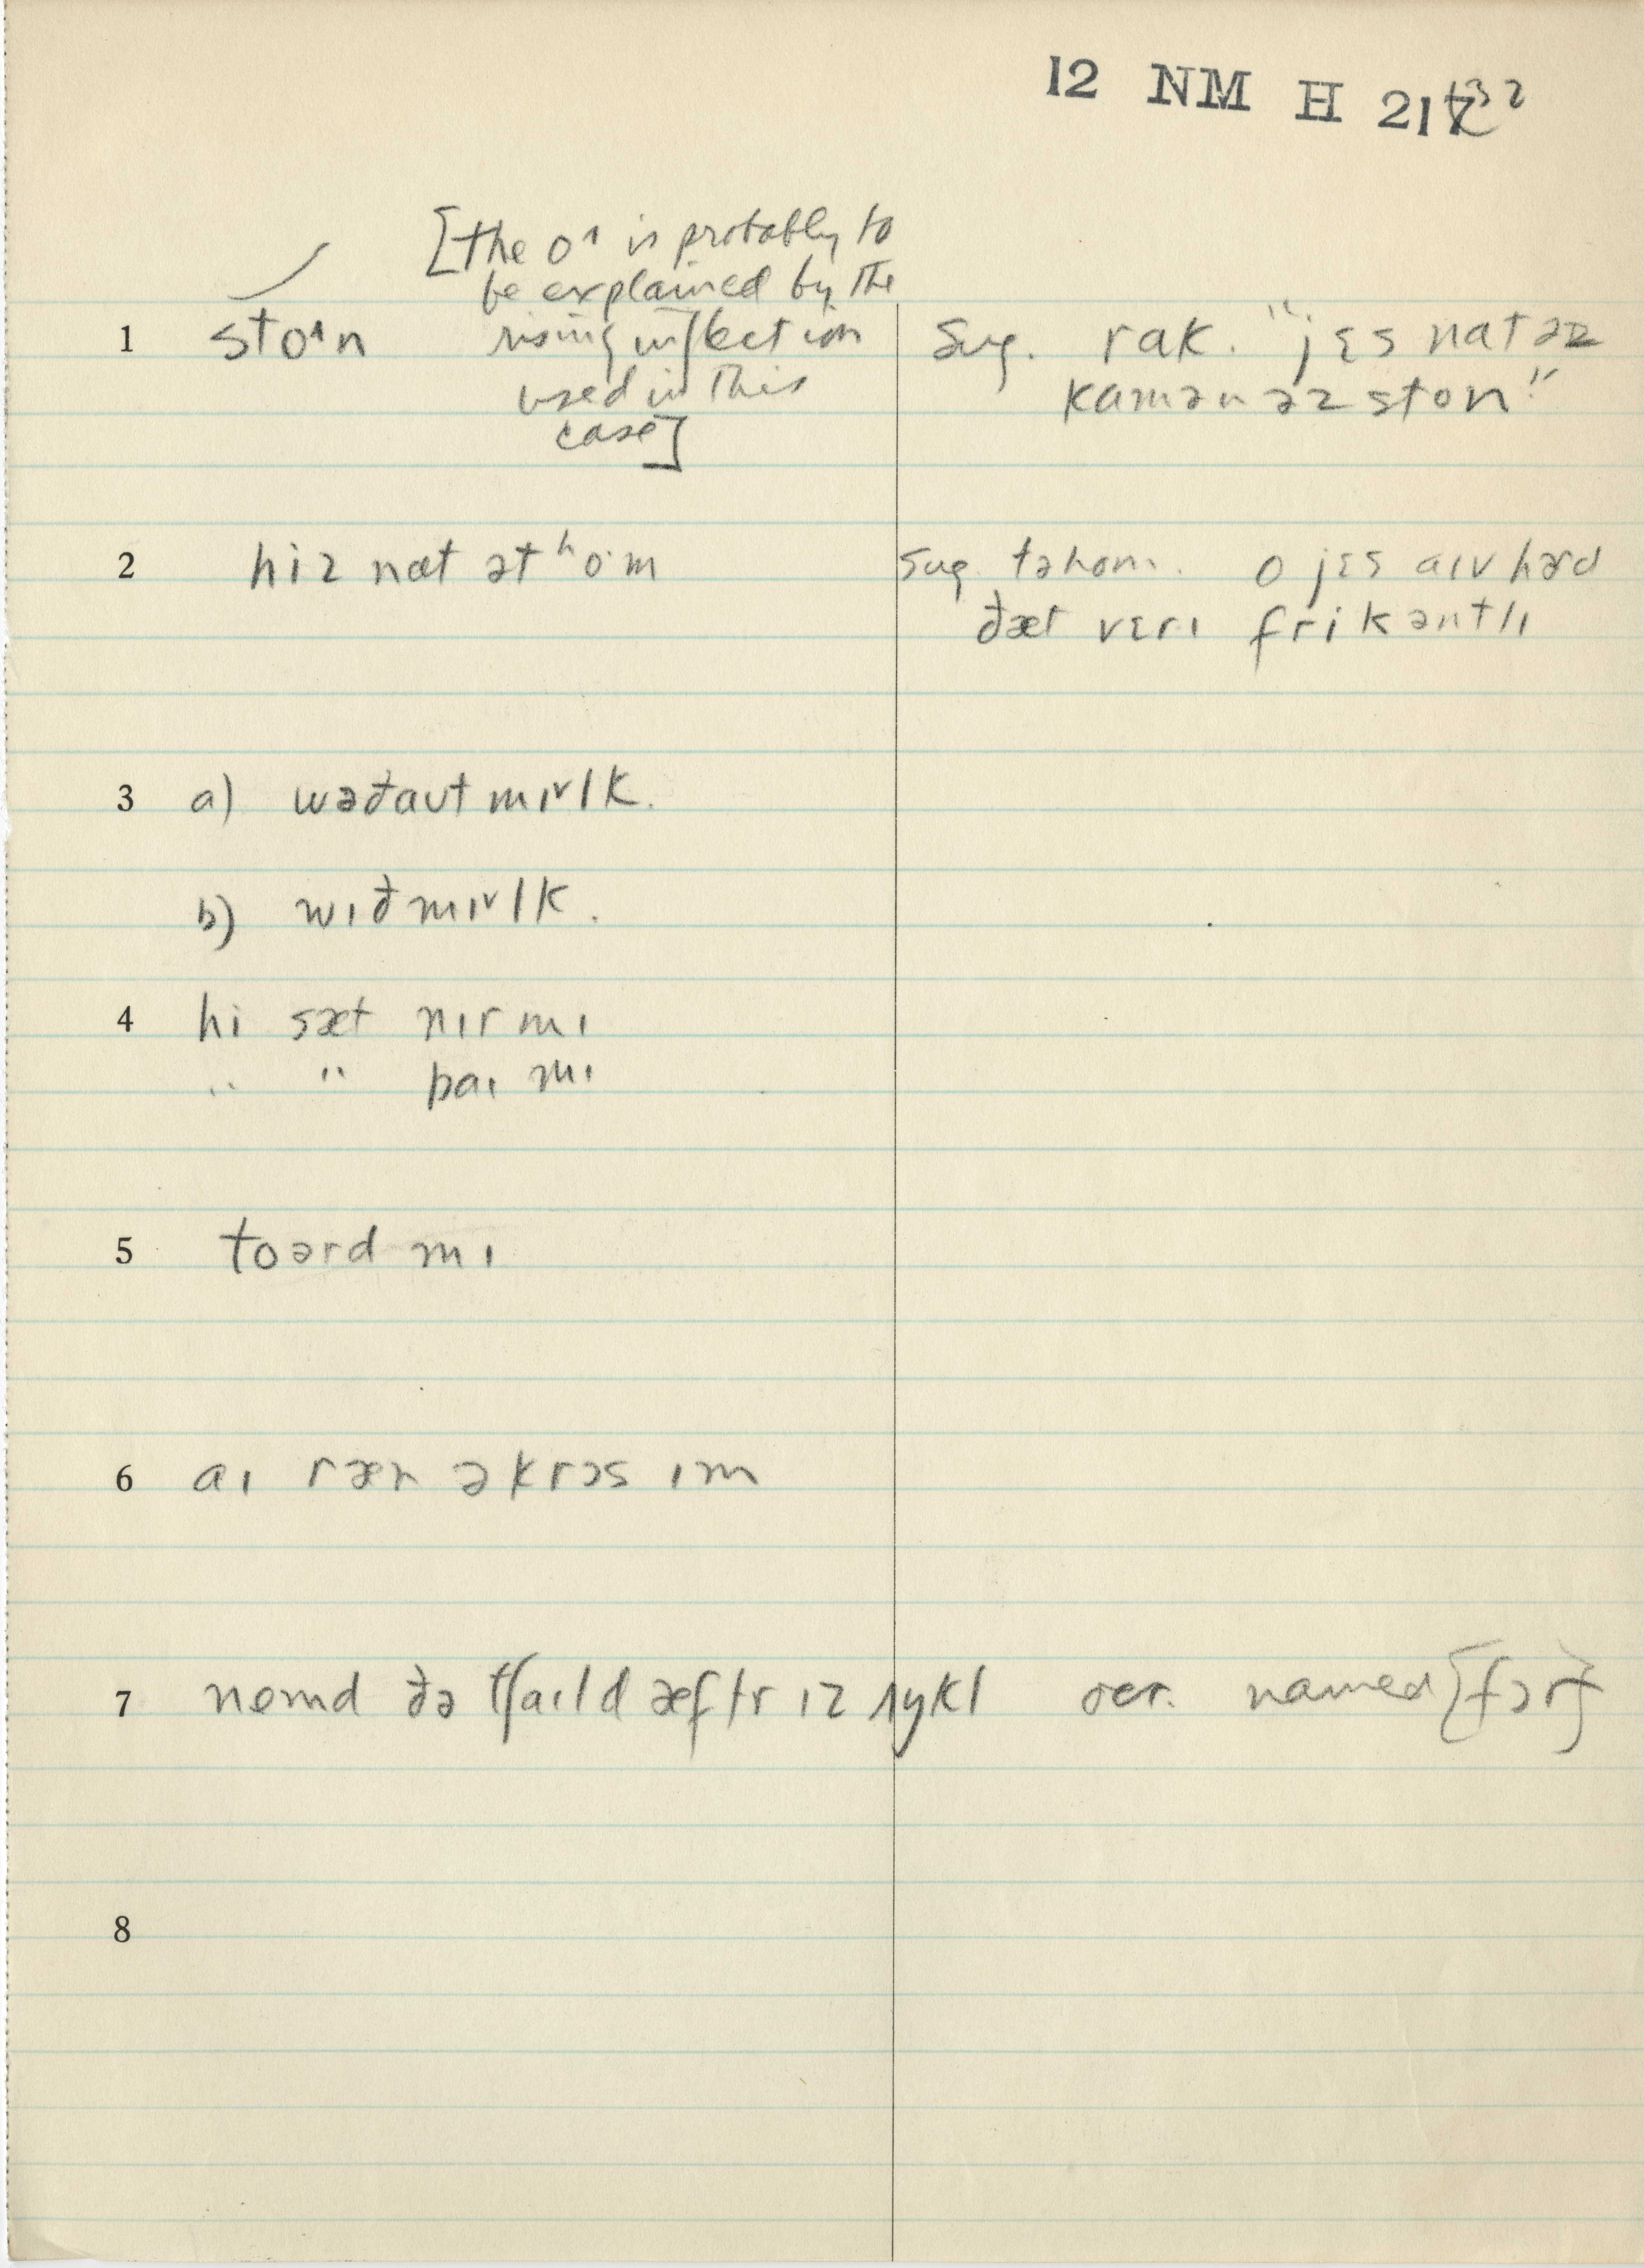 12 NM H 217 32
[the o^ is probably to
be explained by the
1 sto^n rising inflection
used in this
case]
Sug. rak. "jɛs nat əz
kamən əz ston"
2 hiz nat ət ʰo·m
Sug. təhom. o jɛs aɪv hərd
ðæt vɛrɪ frikəntlɪ
3 a) wəðaʊt mɪᵛlk.
b) wɪð mɪᵛlk.
4 hi sæt nɪr mɪ
" " baɪ mɪ
5 toərd mɪ
6 aɪ ræn əkrɔs ɪm
7 nemd ðə tʃaɪld æftr ɪz ʌŋkl occ. named [fɔr]
8